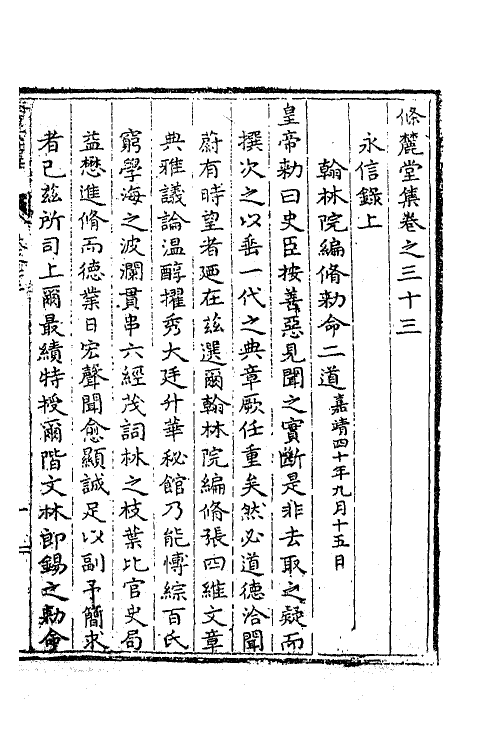 條麓堂集卷之三十三
永信錄上
翰林院編脩勑命二道嘉靖四十年九月十五日
皇帝勑曰史臣按善惡見聞之實斷是非去取之疑而
撰次之以垂一代之典章厥任重矣然必道德洽聞
蔚有時望者廼在茲選爾翰林院編脩張四維文章
典雅議論温醇擢秀大廷升華秘館乃能慱綜百氏
窮學海之波瀾貫串六經茂詞林之枝葉比官史局
益懋進脩而德業日宏聲聞愈顯誠足以副予簡求
者已兹所司上爾最績特授爾階文林郎錫之勑命